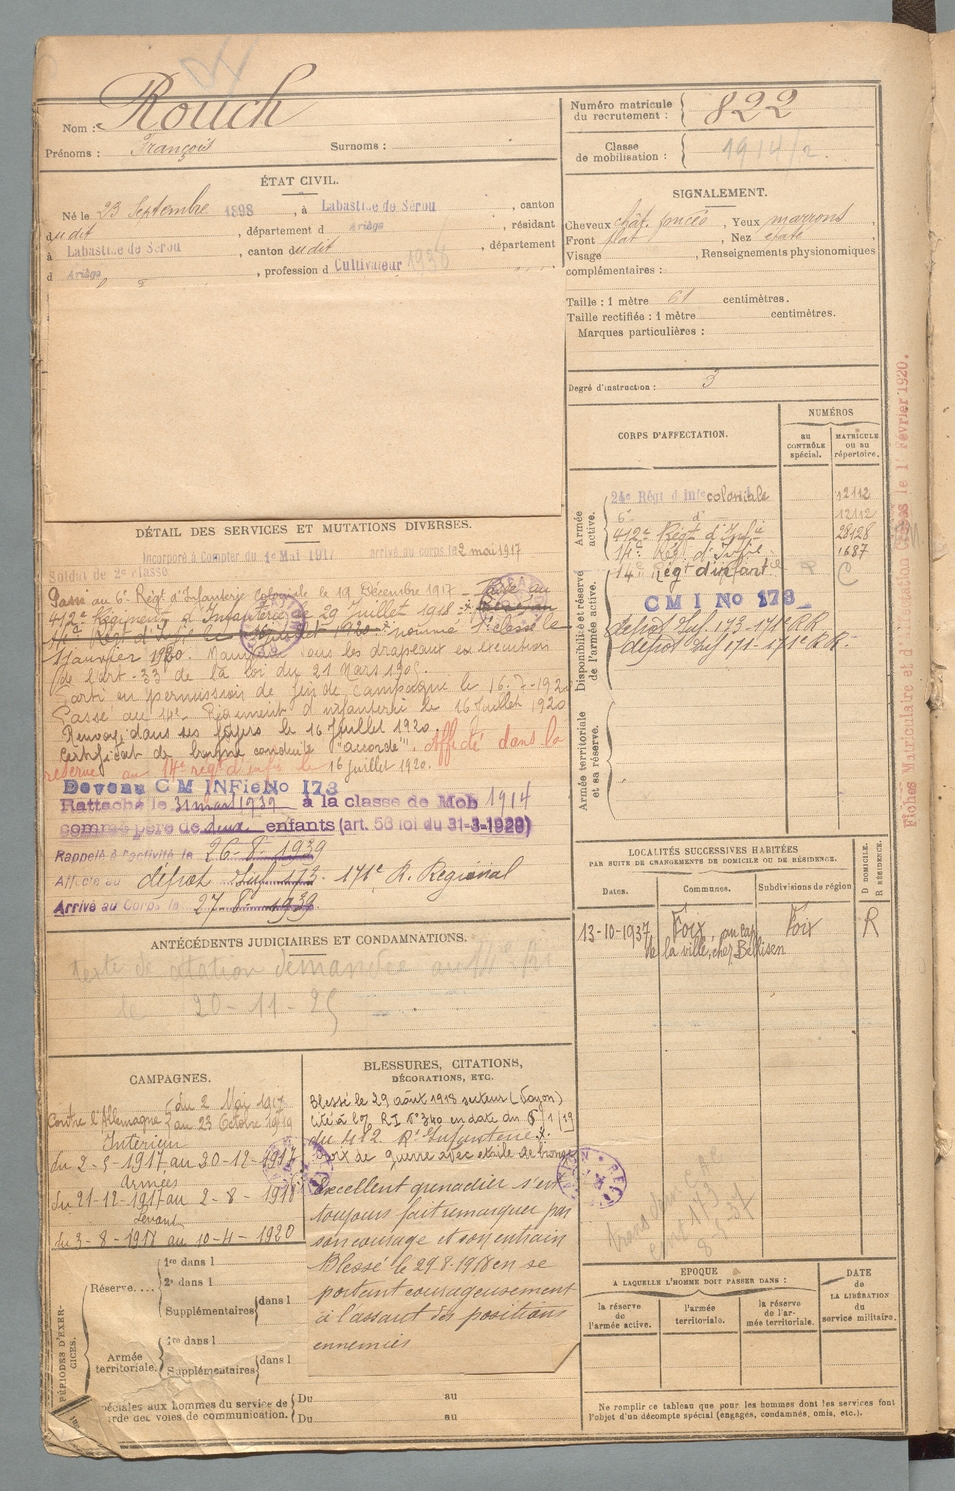 Nom : Rouch
Prénoms : François Surnoms :
Numéro matricule du recrutement : 822
Classe de mobilisation : 1914/2.
ÉTAT CIVIL.
Né le 23 Septembre 1898, à Labastide de Sérou, canton
dudit, département d Ariège, résidant
à Labastide de Sérou, canton dudit, département
d Ariège, profession d Cultivateur 1938
SIGNALEMENT.
Cheveux chât. foncés, Yeux marrons,
Front plat, Nez
Visage , Renseignements physionomiques
complémentaires :
Taille : 1 mètre 61 centimètres.
Taille rectifiée : 1 mètre centimètres.
Marques particulières :
Degré d'instruction : 3
CORPS D'AFFECTATION.
NUMÉROS
au CONTRÔLE spécial.
MATRICULE ou au répertoire.
Armée active.
24e Régt d'Infie coloniale 12112
6e d° 12112
412e Régt d'Infie 28128
14e Régt d'Infie 1687
Disponibilité et réserve de l'armée active.
14e Régt d'infantie C
CMI No 173
dépôt Inf. 173 - 171e RR
dépôt Inf 171 - 171e RR.
Armée territoriale et sa réserve.
Fiches Matriculaire et d' les le 1 Février 1920.
DÉTAIL DES SERVICES ET MUTATIONS DIVERSES.
Incorporé à Compter du 1er Mai 1917 arrivé au corps le 2 mai 1917
Soldat de 2e classe
Passé au 6e Régt d'Infanterie Coloniale le 19 Décembre 1917 - Passé au
412e Régiment d'Infanterie le 29 Juillet 1918
14e Régt d'Infie le 16 juillet 1920 nommé 1e classe le
1 Janvier 1920. Maintenu sous les drapeaux en exécution
de l'art. 33 de la loi du 21 Mars 1905.
Parti en permission de fin de campagne le 16-7-1920
Passé au 14e Régiment d'infanterie le 16 Juillet 1920
Renvoyé dans ses foyers le 16 Juillet 1920.
Certificat de bonne conduite "accordé". Affecté dans la
réserve au 14e régt d'infie le 16 juillet 1920.
Devenu CM INFie No 173
Rattaché le 31 mars 1939 à la classe de Mob 1914
comme père de deux enfants (art. 58 loi du 31-3-1928)
Rappelé à l'activité le 26-8-1939
Affecté au dépôt Inf 173. 171e R. Régional
Arrivé au Corps le 27-8-1939
LOCALITÉS SUCCESSIVES HABITÉES
PAR SUITE DE CHANGEMENTS DE DOMICILE OU DE RÉSIDENCE.
Dates. Communes. Subdivisions de région D DOMICILE. R RÉSIDENCE.
13-10-1937 Foix, au cap Foix R
de la ville, chez Bellisen
ANTÉCÉDENTS JUDICIAIRES ET CONDAMNATIONS.
texte de citation demandée au
le 20-11-25
CAMPAGNES.
Contre l'Allemagne du 2 Mai 1917
au 23 Octobre 1919
Intérieur
du 2-5-1917 au 20-12-1917
Armées
du 21-12-1917 au 2-8-1918
Levant
du 3-8-1918 au 10-4-1920
BLESSURES, CITATIONS,
DÉCORATIONS, ETC.
Blessé le 29 août 1918 secteur (Noyon)
Cité à l'O. RI N° 340 en date du 5/1/19
du 412 Rt d'Infanterie.
Croix de guerre avec étoile de bronze
Excellent grenadier s'est
toujours fait remarquer par
son courage et son entrain
Blessé le 29.8.1918 en se
portant courageusement
à l'assaut des positions
ennemies
PÉRIODES D'EXERCICES.
Réserve....
1re dans l
2e dans l
Supplémentaires dans l
Armée territoriale.
1re dans l
Supplémentaires dans l
péciales aux hommes du service de
arde des voies de communication.
Du au
Du au
8-5-37
EPOQUE
A LAQUELLE L'HOMME DOIT PASSER DANS :
la réserve de l'armée active.
l'armée territoriale.
la réserve de l'armée territoriale.
DATE de LA LIBÉRATION du service militaire.
Ne remplir ce tableau que pour les hommes dont les services font
l'objet d'un décompte spécial (engagés, condamnés, omis, etc.).